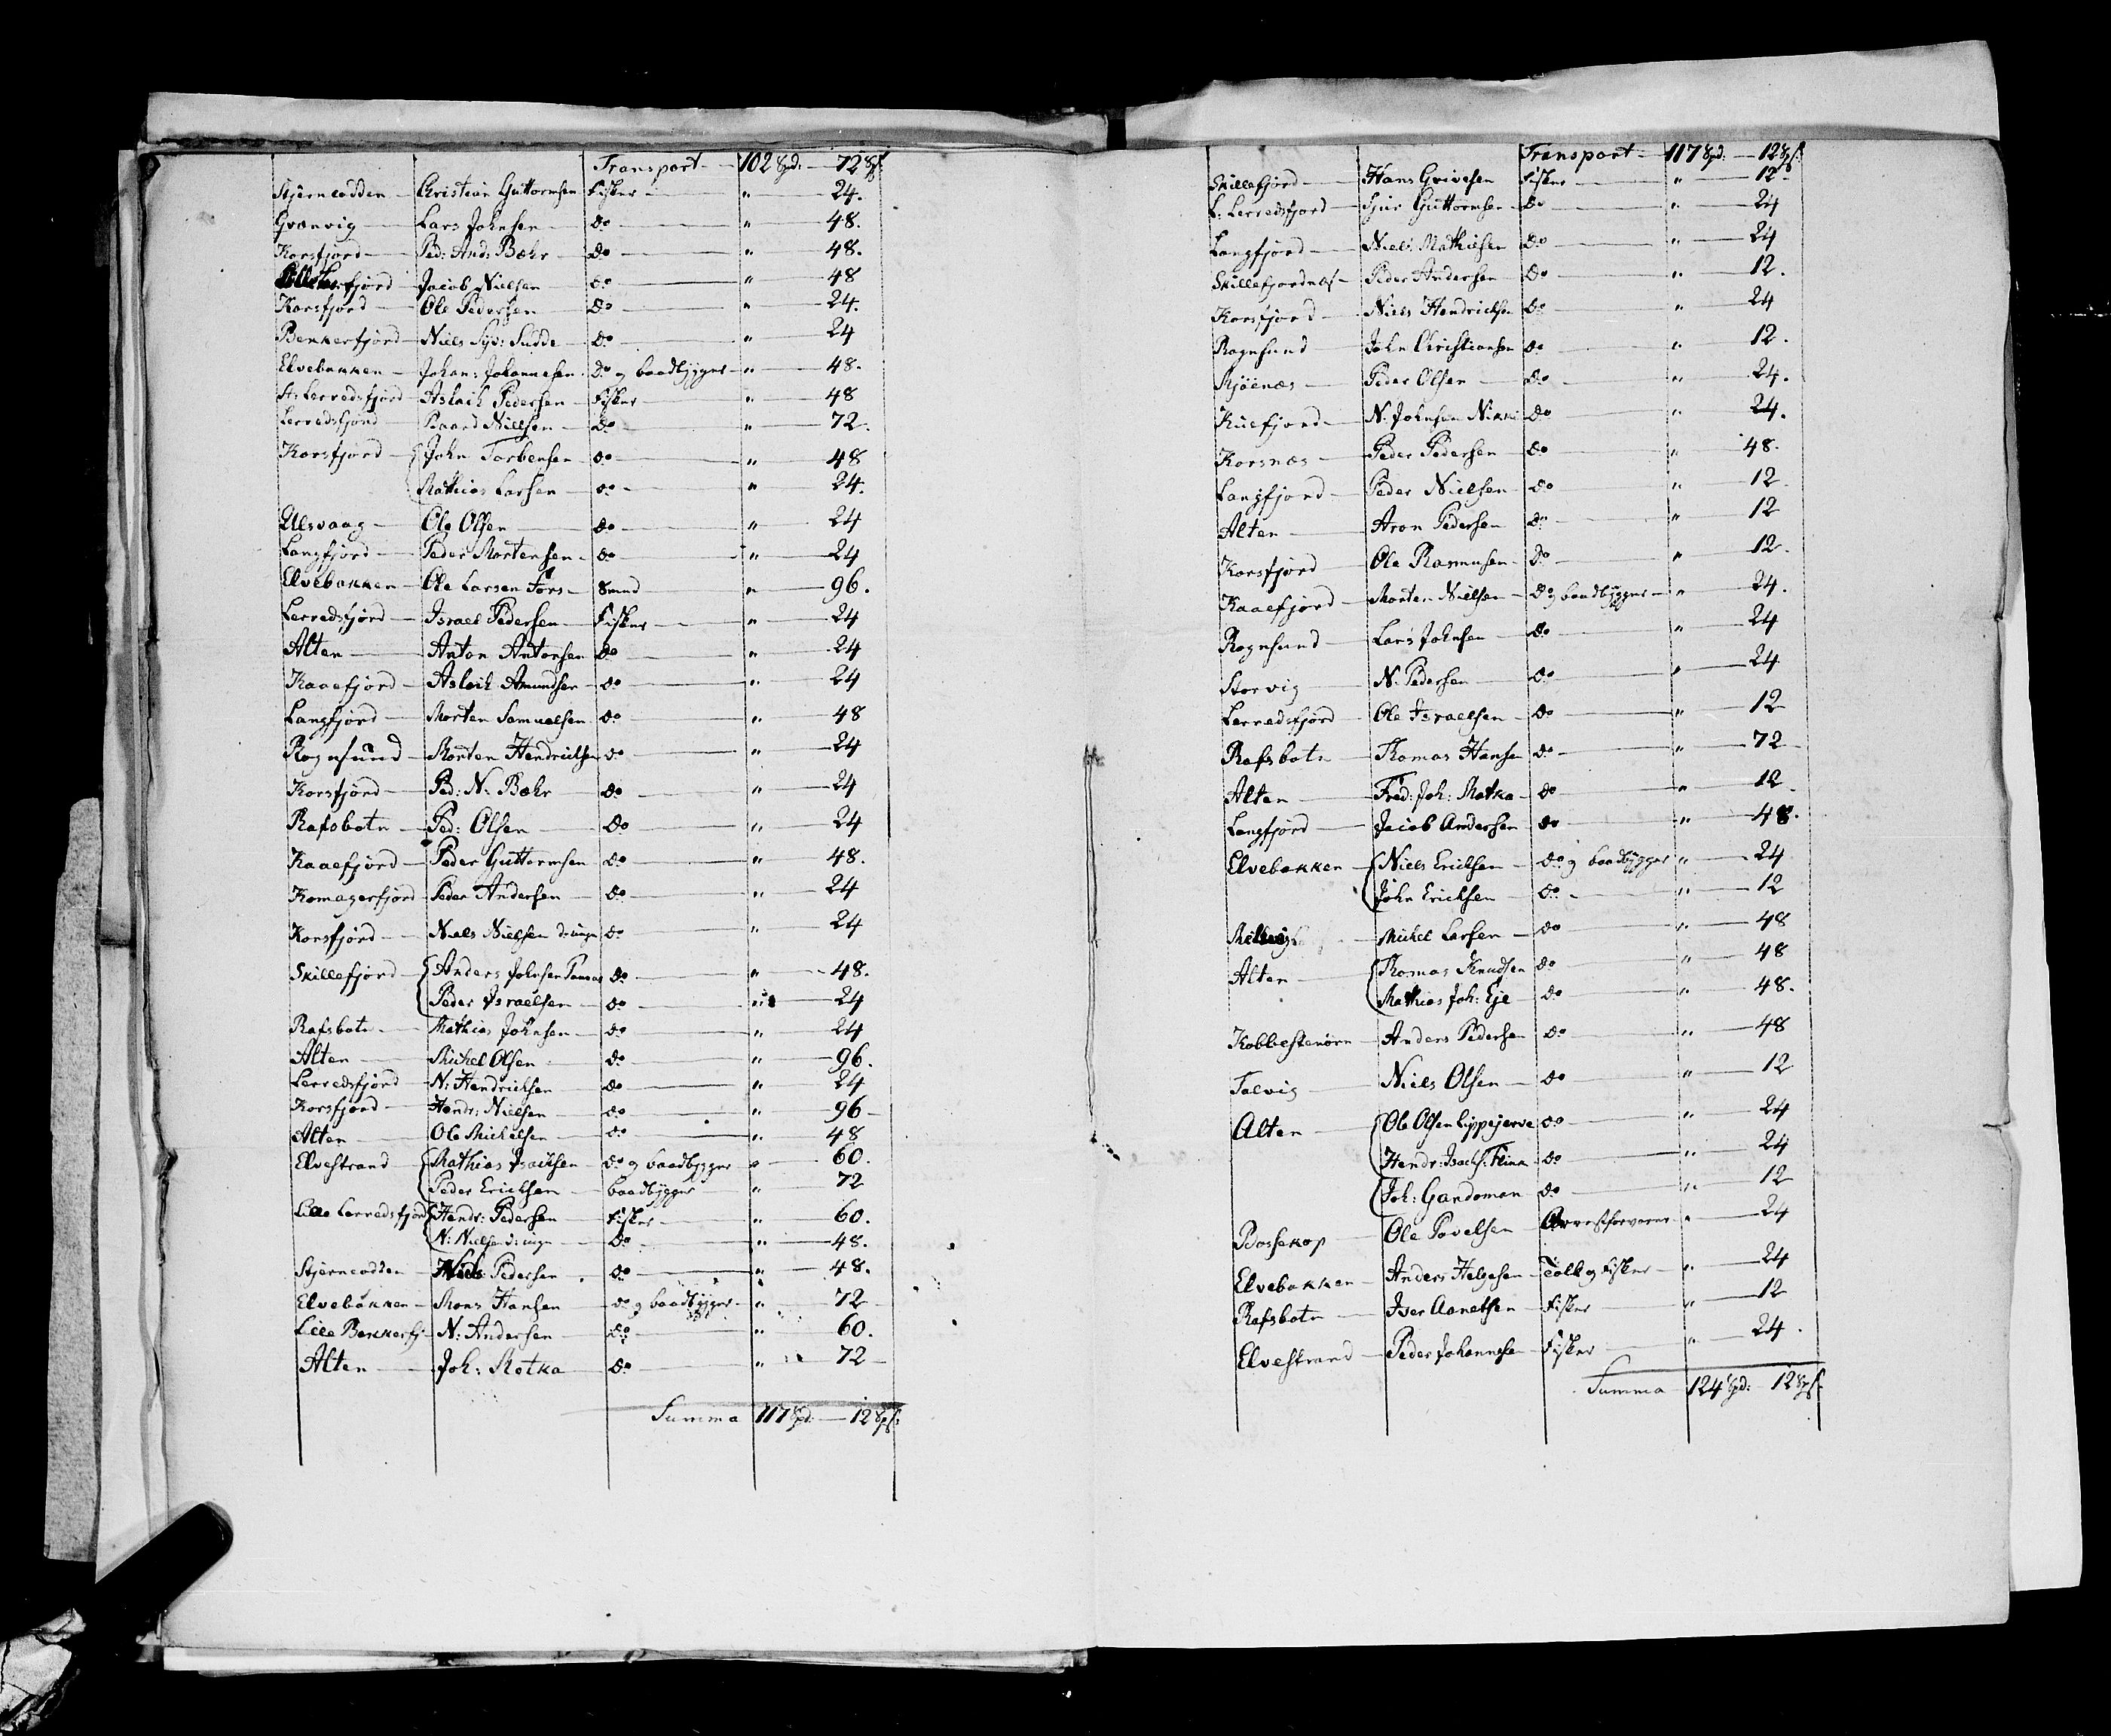 Transport — 102 Spd: — 72 sk:
Stjerneodden — Christian Guttormsen Fisker — " — 24.
Grønvig — Lars Johnsen — do — " — 48.
Korsfjord — Ped: And: Bæhr — do — " — 48.
fjord — Jacob Nielsen — do — " — 48
Korsfjord — Ole Pedersen — do — " — 24.
Benkerfjord — Niels Syv: Sudde — do — " — 24
Elvebakken — Johan: Johannesen — do og baadbygger — " — 48.
St: Lerredsfjord Aslach Pedersen — Fisker — " — 48
Lerredsfjord — Baard Nielsen — do — " — 72.
Korsfjord — John Torbensen — do — " — 48
Mathias Larsen — do — " — 24.
Ulsvaag — Ole Olsen — do — " — 24
Langfjord — Peder Mortensen — do — " — 24
Elvebakken — Ole Larsen Fors — Smed — " — 96.
Lerredsfjord — Israel Pedersen — Fisker — " — 24
Alten — Anton Antonsen do — " — 24
Kaaefjord — Aslach Amundsen — do — " — 24
Langfjord — Morten Samuelsen do — " — 48
Rognsund — Morten Hendrichsen do — " — 24
Korsfjord — Ped: N: Bæhr — do — " — 24
Rafsbotn — Ped: Olsen — do — " — 24
Kaaefjord — Peder Guttormsen do — " — 48.
Komagerfjord — Peder Andersen — do — " — 24
Korsfjord — Niels Nielsen d: inge do — " — 24
Skillefjord — Anders Johnsen do — " — 48.
Peder Israelsen — do — " — 24
Rafsbotn — Mathias Johnsen — do — " — 24
Alten — Michel Olsen — do — " — 96.
Lerredsfjord — N: Hendrichsen — do — " — 24
Korsfjord — Hendr: Nielsen — do — " — 96
Alten — Ole Michelsen — do — " — 48
Elvestrand — Mathias Isachsen — do og baadbygger " — 60.
Peder Erichsen — baadbygger — " — 72
Lille Lerredsfjord Hendr: Pedersen — Fisker — " — 60.
N: Nielsen d: inge — do — " — 48.
Stjerneodden — Niels Pedersen — do — " — 48.
Elvebakken — Mons Hansen — do og baadbygger — " — 72
Lille Benkerfj: — N: Andersen — do — " — 60.
Alten — Joh: Motka — do — " — 72
Summa 117 Spd: — 12 sk:
Transport — 117 Spd: — 12 sk:
Skillefjord — Hans Grivesen Fisker — " — 12
L: Lerredsfjord — Sjur Guttormsen — do — " — 24
Langfjord — Niels Mathisen do — " — 24
Skillefjordnæs — Peder Andersen do — " — 12.
Korsfjord — Niels Hendrichsen do — " — 24
Rognsund — John Christiansen do — " — 12.
Mjøenæs — Peder Olsen — do — " — 24.
Kuefjord — N: Johnsen Nikki do — " — 24.
Korsnæs — Peder Pedersen do — " — 48.
Langfjord — Peder Nielsen do — " — 12
Alten — Aron Pedersen do — " — 12
Korsfjord — Ole Rasmusen — do — " — 12.
Kaaefjord — Morten Nielsen — do og baadbygger — " — 24.
Rognsund — Lars Johnsen — do — " — 24
Storvig — N: Pedersen — do — " — 24
Lerredsfjord — Ole Israelsen — do — " — 12
Rafsbotn — Thomas Hansen do — " — 72
Alten — Fred: Joh: Motka — do — " — 12
Langfjord — Jacob Andersen do — " — 48.
Elvebakken — Niels Erichsen — do og baadbygger " — 24
John Erichsen — do — " — 12
Michel Larsen — do — " — 48
Alten — Thomas Knudsen do — " — 48
Mathias Joh: Eje do — " — 48.
Anders Pedersen do — " — 48
Talvig — Niels Olsen — do — " — 12
Alten — Ole Olsen Lippejerve do — " — 24
Hendr: Isachs: Flina do — " — 24
Joh: Gandoman do — " — 12
Bossekop — Ole Povelsen — Arrestforvarer " — 24
Elvebakken — Anders Helgesen — Tolk og Fisker — " — 24
Rafsbotn — Iver Aanethsen — Fisker — " — 12
Elvestrand — Peder Johannesen — Fisker — " — 24.
Summa 124 Spd: 12 sk: